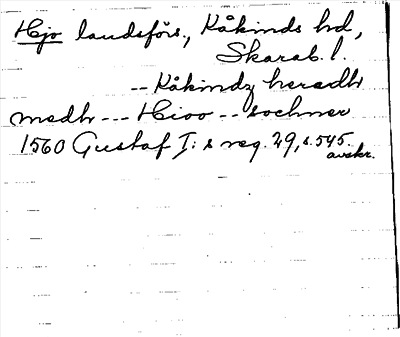 Hjo landsförs., Kåkinds hd,
Skarab. l.
-- Kåkindz heredh
medh --- Hioo -- sochner
1560 Gustaf I:s reg. 29, s. 545.
avskr.